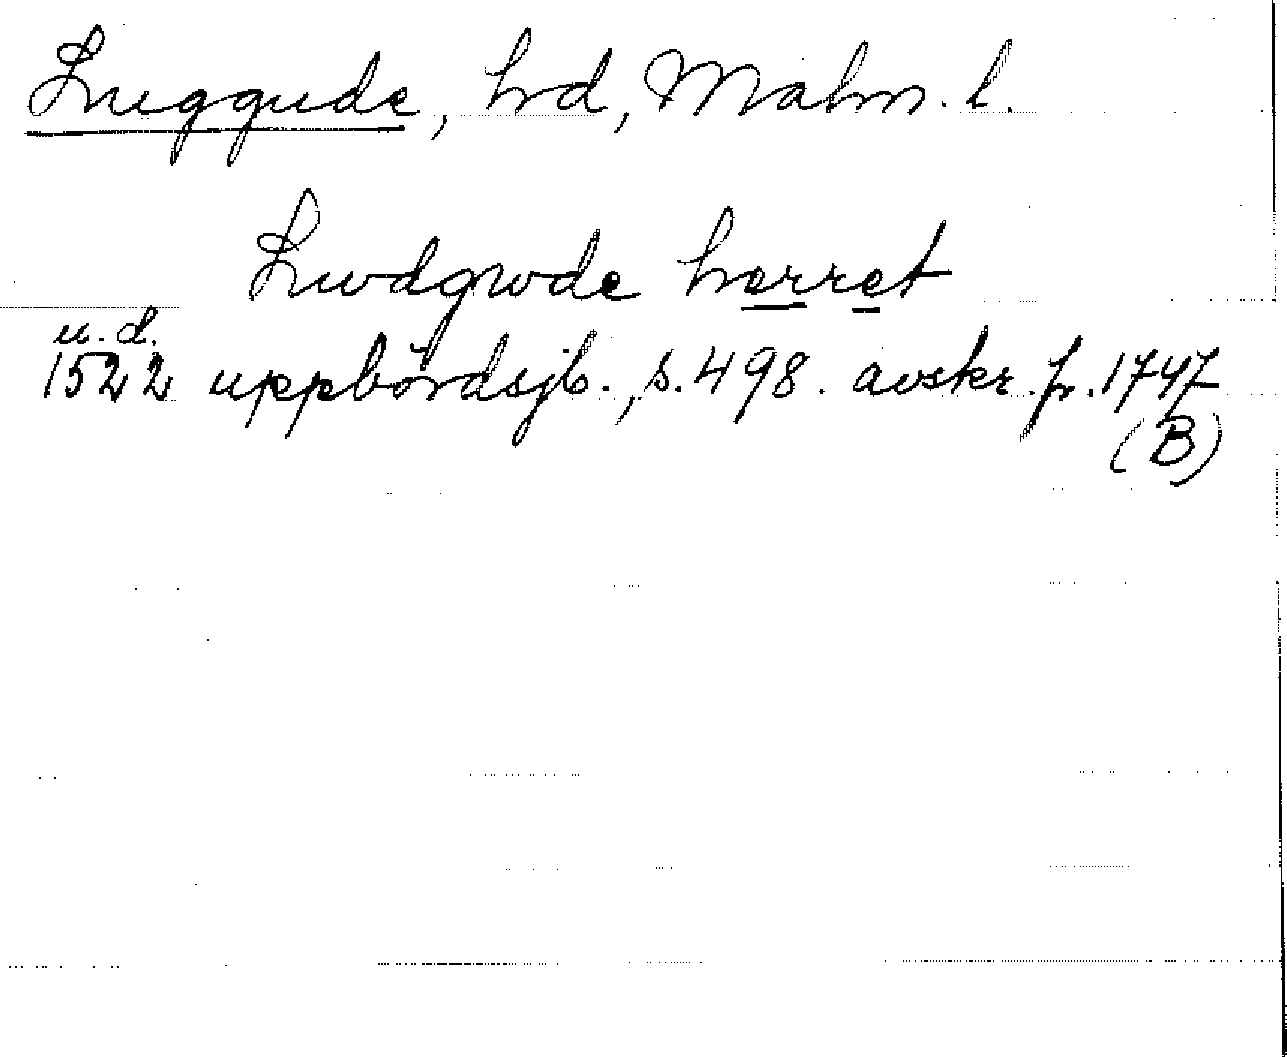 Luggude, hd, Malm. l.
Lwdgwde herret
u. d.
1522 uppbördsjb., s. 498. avskr. fr. 1747
(B)